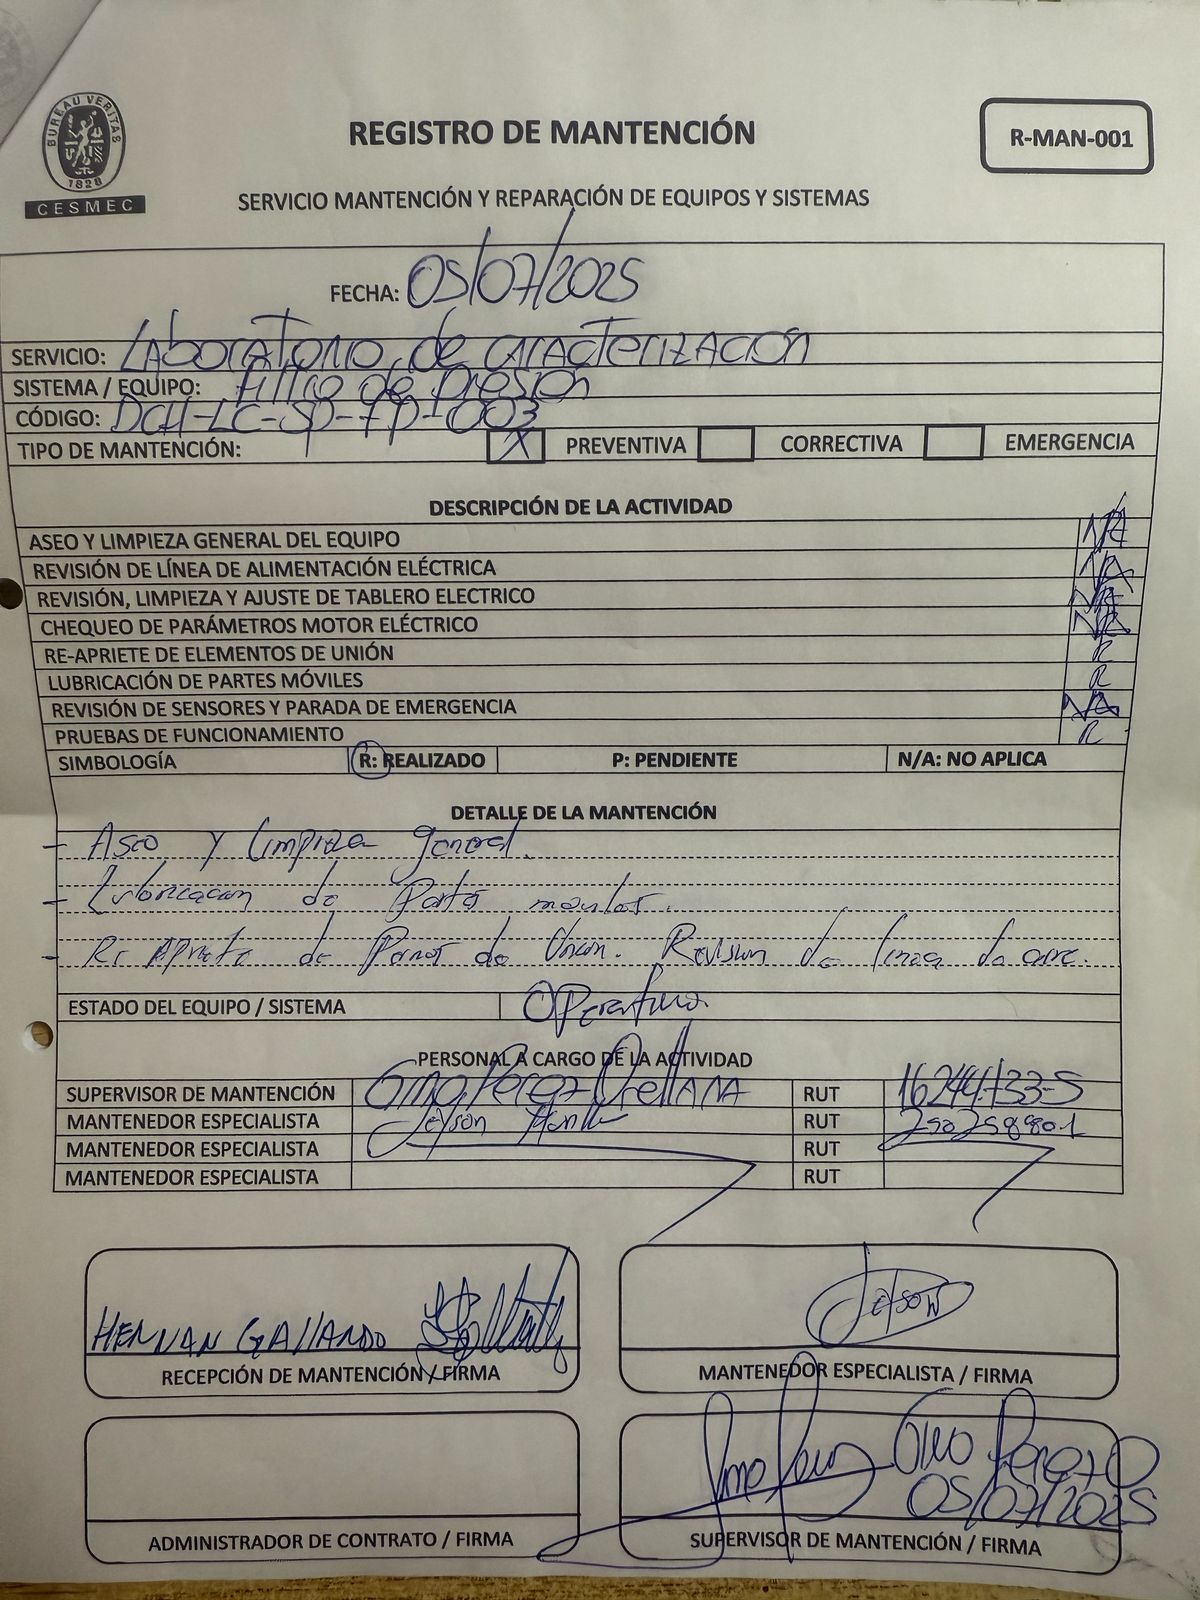 BUREAU VERITAS
1828
CESMEC
REGISTRO DE MANTENCIÓN
R-MAN-001
SERVICIO MANTENCIÓN Y REPARACIÓN DE EQUIPOS Y SISTEMAS
FECHA: 05/07/2025
SERVICIO: Laboratorio de caracterizacion
SISTEMA / EQUIPO: Filtro de presión
CÓDIGO: DCH-LC-SP-FP-003
TIPO DE MANTENCIÓN: X PREVENTIVA CORRECTIVA EMERGENCIA
DESCRIPCIÓN DE LA ACTIVIDAD
ASEO Y LIMPIEZA GENERAL DEL EQUIPO
REVISIÓN DE LÍNEA DE ALIMENTACIÓN ELÉCTRICA N/A
REVISIÓN, LIMPIEZA Y AJUSTE DE TABLERO ELECTRICO
CHEQUEO DE PARÁMETROS MOTOR ELÉCTRICO N/A
RE-APRIETE DE ELEMENTOS DE UNIÓN R
LUBRICACIÓN DE PARTES MÓVILES R
REVISIÓN DE SENSORES Y PARADA DE EMERGENCIA N/A
PRUEBAS DE FUNCIONAMIENTO R
SIMBOLOGÍA R: REALIZADO P: PENDIENTE N/A: NO APLICA
DETALLE DE LA MANTENCIÓN
- Aseo y limpieza general.
- Lubricacion de Partes moviles.
- Re Apriete de Pernos de Union. Revision de linea de aire.
ESTADO DEL EQUIPO / SISTEMA Operativo
PERSONAL A CARGO DE LA ACTIVIDAD
SUPERVISOR DE MANTENCIÓN Gino Perez Orellana RUT 16244733-5
MANTENEDOR ESPECIALISTA Jeyson RUT
MANTENEDOR ESPECIALISTA RUT
MANTENEDOR ESPECIALISTA RUT
HERNAN GALLARDO
RECEPCIÓN DE MANTENCIÓN / FIRMA
Jeyson
MANTENEDOR ESPECIALISTA / FIRMA
Gino Perez O
05/07/2025
ADMINISTRADOR DE CONTRATO / FIRMA
SUPERVISOR DE MANTENCIÓN / FIRMA